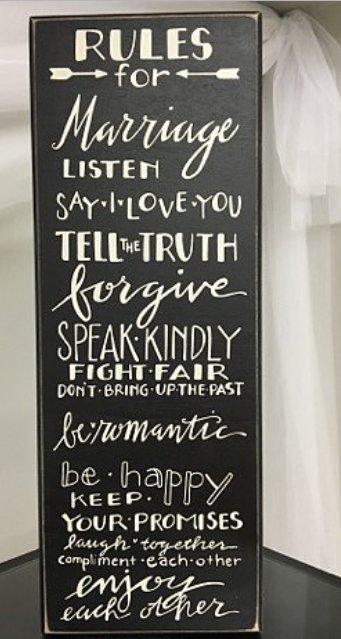 RULES
for
Marriage
LISTEN
SAY·I·LOVE·YOU
TELL THE TRUTH
forgive
SPEAK·KINDLY
FIGHT·FAIR
DON'T·BRING·UP·THE·PAST
be·romantic
be·happy
KEEP·
YOUR·PROMISES
laugh·together
compliment·each·other
enjoy
each other